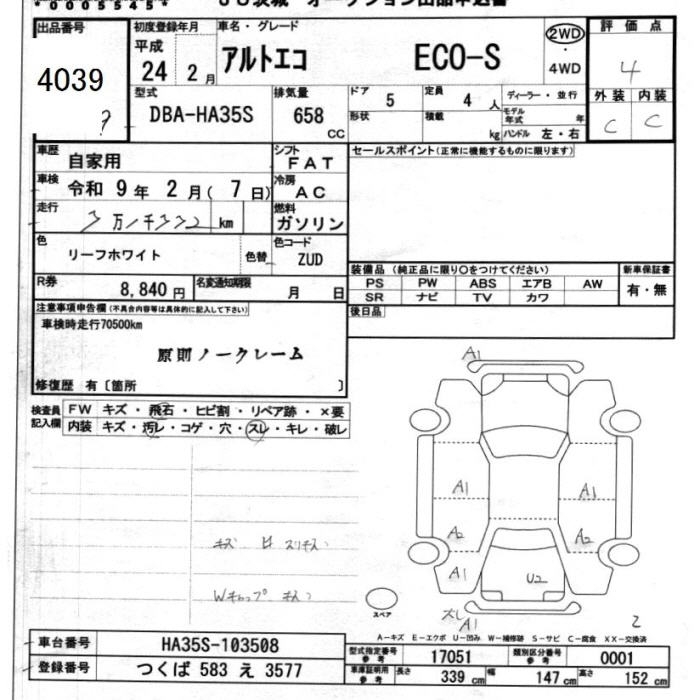 *0005545*
オークション出品申込書
出品番号 初度登録年月 車名・グレード 2WD・4WD 評価点
4039 平成 24 2月 アルトエコ ECO-S 4
型式 排気量 ドア 5 定員 4人 ディーラー・並行 外装 内装
DBA-HA35S 658 CC 形状 積載 kg モデル年式 年 ハンドル 左・右 C C
車歴 自家用 シフト FAT セールスポイント(正常に機能するものに限ります)
車検 令和 9年 2月( 7日) 冷房 AC
走行 km 燃料 ガソリン
色 リーフホワイト 色替 色コード ZUD
R券 8,840円 名変通知期限 月 日
装備品(純正品に限り○をつけてください) 新車保証書
PS PW ABS エアB AW 有・無
SR ナビ TV カワ
後日品
注意事項申告欄(不具合内容等は具体的に記入して下さい)
車検時走行70500km
原則ノークレーム
修復歴 有〔箇所 〕
検査員記入欄 FW キズ・飛石・ヒビ割・リペア跡・×要
内装 キズ・汚レ・コゲ・穴・スレ・キレ・破レ
A1
A1 A1
A2 A2
A1 U2
スペア
A1
2
A-キズ E-エクボ U-凹み W-補修跡 S-サビ C-腐食 XX-交換済
車台番号 HA35S-103508
登録番号 つくば 583 え 3577
型式指定番号 参考 17051 類別区分番号 参考 0001
車庫証明用 参考 長さ 339 cm 幅 147 cm 高さ 152 cm